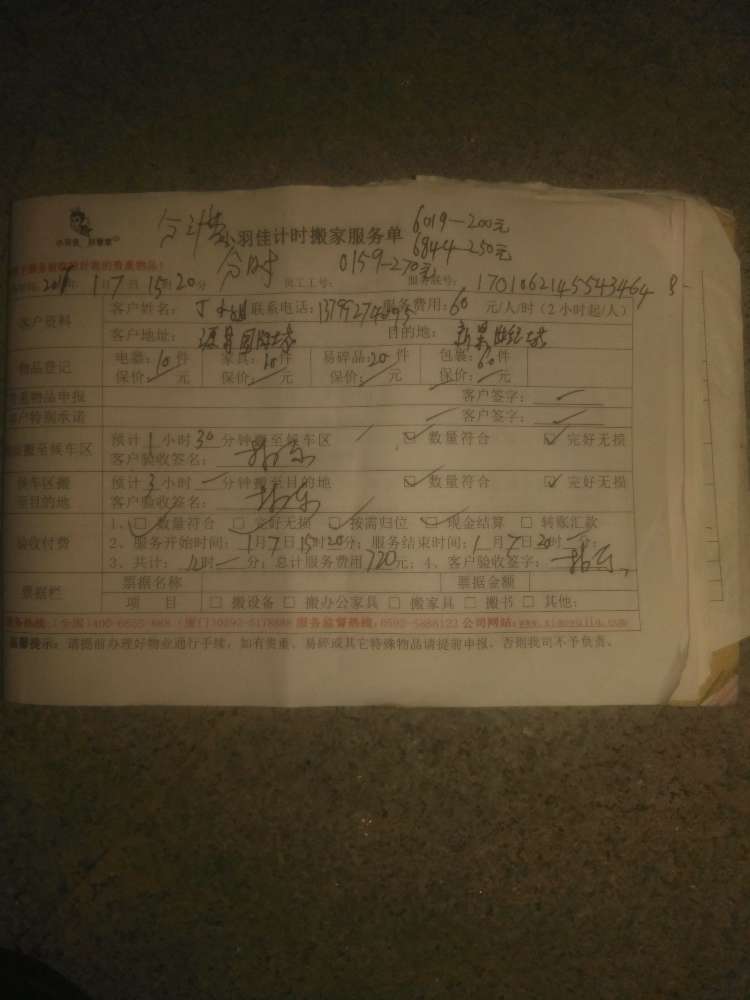 小羽佳计时搬家服务单
6019—200元
6944—250元
0159—270元
1月7日15时20分 员工工号: 服务账号: 1701062145543464
客户资料 客户姓名: 丁小姐 联系电话: 服务费用: 60 元/人/时(2小时起/人)
客户地址: 目的地:
物品登记 电器: 10件 家具: 10件 易碎品: 20件 包裹: 60件
保价: 元 保价: 元 保价: 元 保价: 元
贵重物品申报 客户签字:
客户特别承诺 客户签字:
搬至候车区 预计1小时30分钟搬至候车区 ☑ 数量符合 ☑ 完好无损
客户验收签名:
候车区搬至目的地 预计3小时一分钟搬至目的地 ☑ 数量符合 ☑ 完好无损
客户验收签名:
验收付费 1、☑ 数量符合 ☑ 完好无损 ☑ 按需归位 ☑ 现金结算 □ 转账汇款
2、服务开始时间: 1月7日15时20分; 服务结束时间: 1月7日20时一分;
3、共计: 12时一分; 总计服务费用720元; 4、客户验收签字:
票据栏 票据名称 票据金额
项目 □ 搬设备 □ 搬办公家具 □ 搬家具 □ 搬书 □ 其他:
服务热线: (全国)400-6655-888 (厦门)0592-5178888 服务监督热线: 0592-5888123 公司网站: www.xiaoyujia.com
温馨提示: 请提前办理好物业进行手续, 如有贵重、易碎或其它特殊物品请提前申报, 否则我司不予负责。